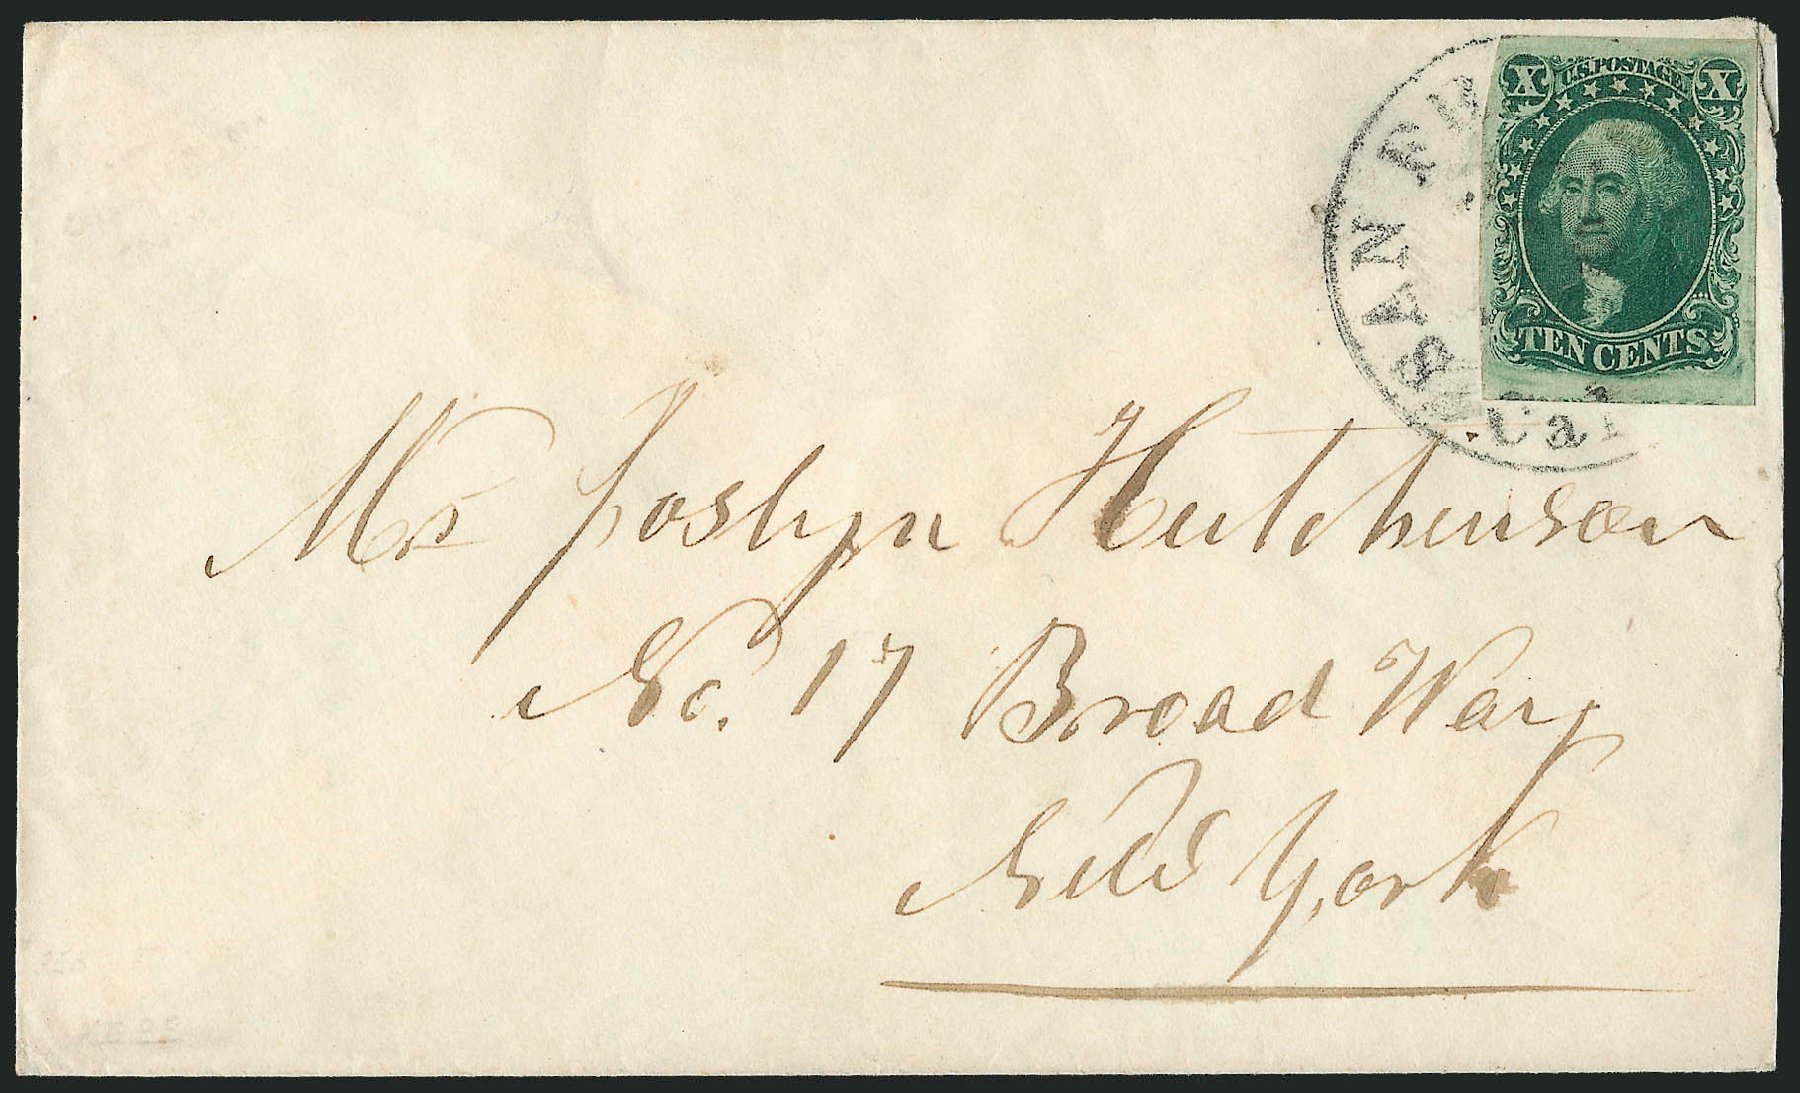 X U.S. POSTAGE X
TEN CENTS
SAN FR
Cal
Mrs Joslyn Hutchinson
No. 17 Broad Way
New York